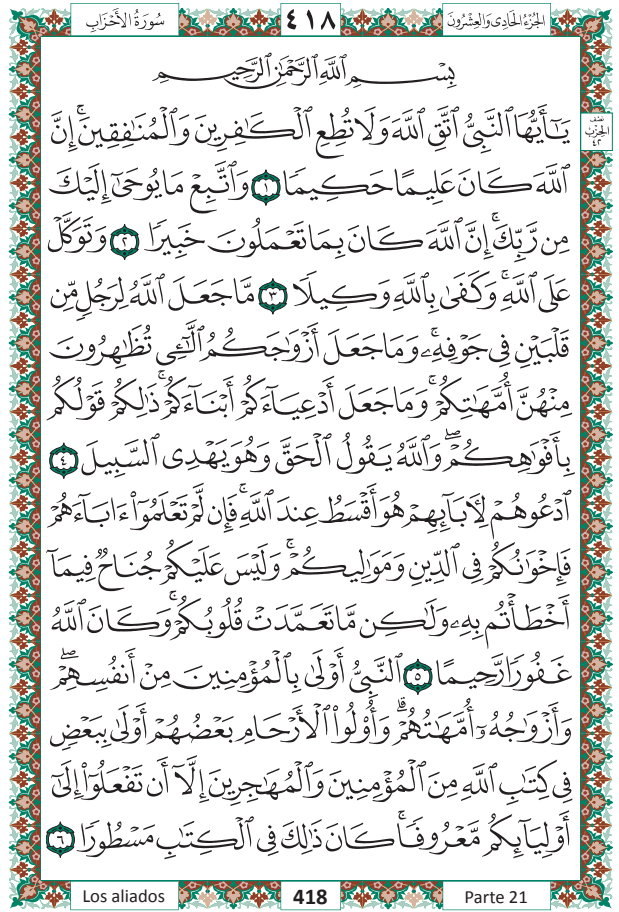 سُورَةُ الأَحْزَابِ ٤١٨ الجُزْءُ الحَادِي وَالعِشْرُونَ
بِسْمِ ٱللَّهِ ٱلرَّحْمَٰنِ ٱلرَّحِيمِ
يَـٰٓأَيُّهَا ٱلنَّبِيُّ ٱتَّقِ ٱللَّهَ وَلَا تُطِعِ ٱلْكَـٰفِرِينَ وَٱلْمُنَـٰفِقِينَۚ إِنَّ
نصف
الحزب
٤٢
ٱللَّهَ كَانَ عَلِيمًا حَكِيمًا ١ وَٱتَّبِعْ مَا يُوحَىٰٓ إِلَيْكَ
مِن رَّبِّكَۚ إِنَّ ٱللَّهَ كَانَ بِمَا تَعْمَلُونَ خَبِيرًا ٢ وَتَوَكَّلْ
عَلَى ٱللَّهِۚ وَكَفَىٰ بِٱللَّهِ وَكِيلًا ٣ مَّا جَعَلَ ٱللَّهُ لِرَجُلٍ مِّن
قَلْبَيْنِ فِى جَوْفِهِۦۚ وَمَا جَعَلَ أَزْوَٰجَكُمُ ٱلَّـٰٓـِٔى تُظَـٰهِرُونَ
مِنْهُنَّ أُمَّهَـٰتِكُمْۚ وَمَا جَعَلَ أَدْعِيَآءَكُمْ أَبْنَآءَكُمْۚ ذَٰلِكُمْ قَوْلُكُم
بِأَفْوَٰهِكُمْۖ وَٱللَّهُ يَقُولُ ٱلْحَقَّ وَهُوَ يَهْدِى ٱلسَّبِيلَ ٤
ٱدْعُوهُمْ لِـَٔابَآئِهِمْ هُوَ أَقْسَطُ عِندَ ٱللَّهِۚ فَإِن لَّمْ تَعْلَمُوٓا۟ ءَابَآءَهُمْ
فَإِخْوَٰنُكُمْ فِى ٱلدِّينِ وَمَوَٰلِيكُمْۚ وَلَيْسَ عَلَيْكُمْ جُنَاحٌ فِيمَآ
أَخْطَأْتُم بِهِۦ وَلَـٰكِن مَّا تَعَمَّدَتْ قُلُوبُكُمْۚ وَكَانَ ٱللَّهُ
غَفُورًا رَّحِيمًا ٥ ٱلنَّبِيُّ أَوْلَىٰ بِٱلْمُؤْمِنِينَ مِنْ أَنفُسِهِمْۖ
وَأَزْوَٰجُهُۥٓ أُمَّهَـٰتُهُمْۗ وَأُو۟لُوا۟ ٱلْأَرْحَامِ بَعْضُهُمْ أَوْلَىٰ بِبَعْضٍ
فِى كِتَـٰبِ ٱللَّهِ مِنَ ٱلْمُؤْمِنِينَ وَٱلْمُهَـٰجِرِينَ إِلَّآ أَن تَفْعَلُوٓا۟ إِلَىٰٓ
أَوْلِيَآئِكُم مَّعْرُوفًاۚ كَانَ ذَٰلِكَ فِى ٱلْكِتَـٰبِ مَسْطُورًا ٦
Los aliados 418 Parte 21